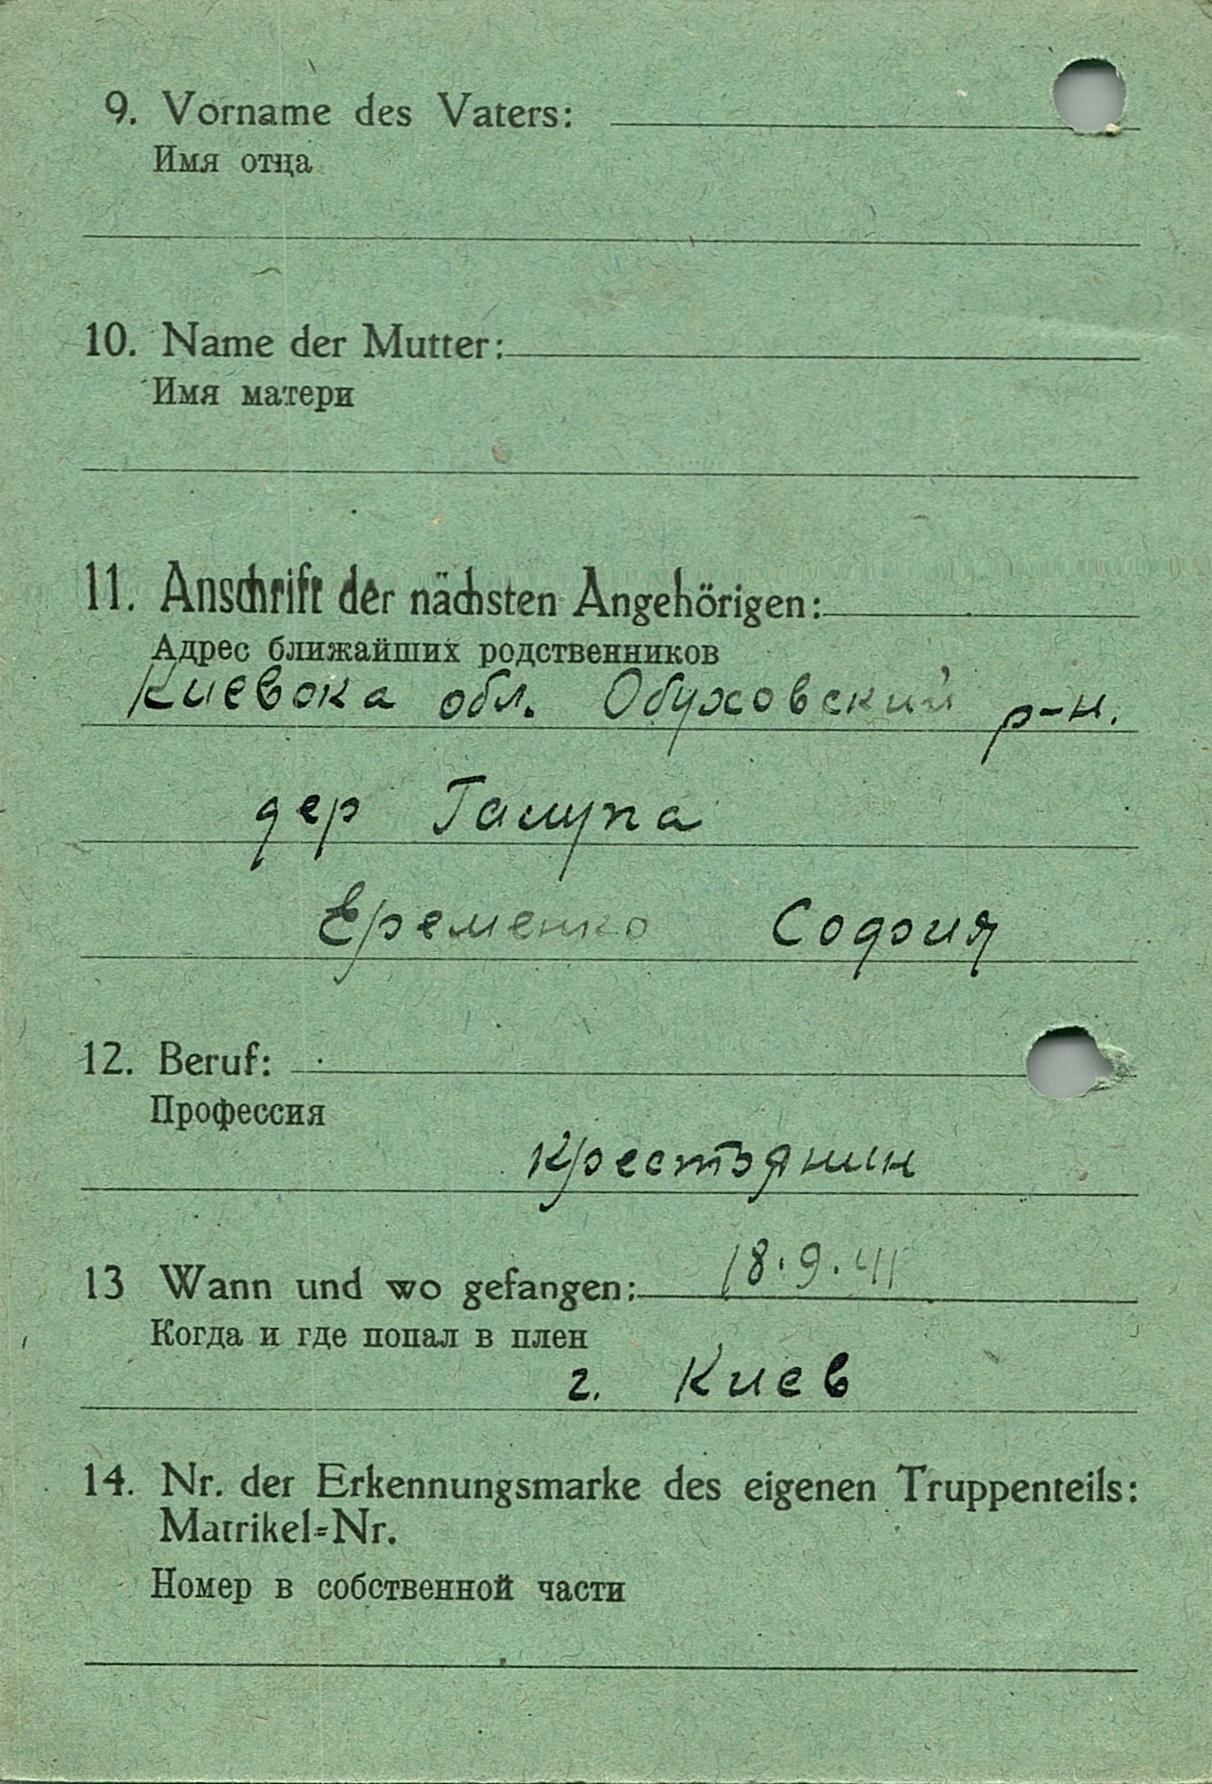 9. Vorname des Vaters:
Имя отца
10. Name der Mutter:
Имя матери
11. Anschrift der nächsten Angehörigen:
Адрес ближайших родственников
Киевока обл. Обуховский р-н.
дер
Еременко София
12. Beruf:
Профессия
крестьянин
13 Wann und wo gefangen: 18.9.41
Когда и где попал в плен
г. Киев
14. Nr. der Erkennungsmarke des eigenen Truppenteils:
Matrikel=Nr.
Номер в собственной части